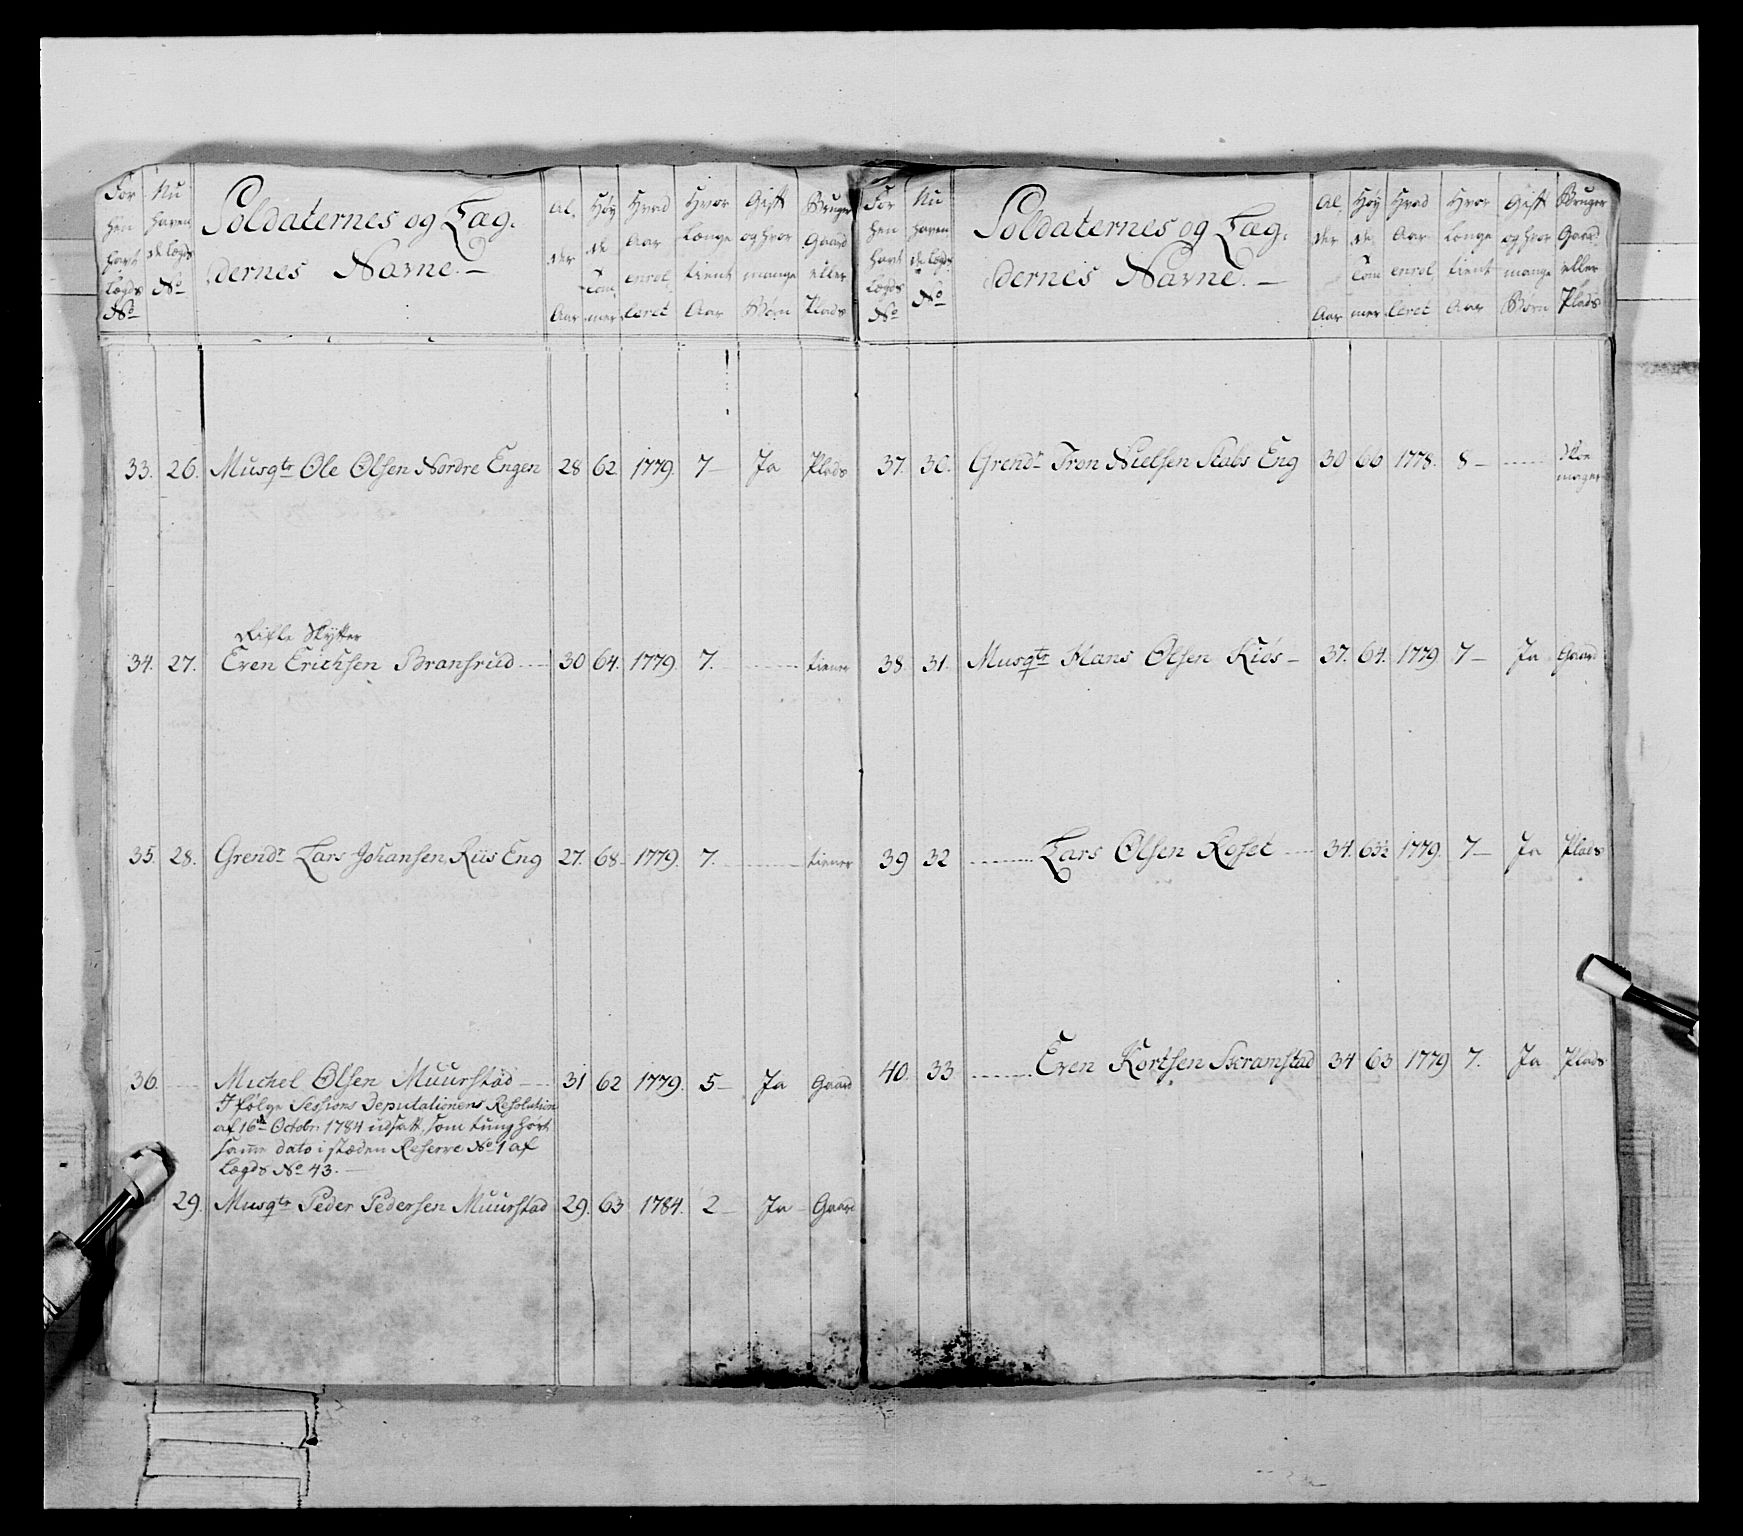 For hen havt Lægds No | Nu haven de Lægds No | Soldaternes og Læg- dernes Navne. — | Al. der Aar | Høy de Tom mer | Hvad Aar enrol leret | Hvor Længe tient Aar | Gift og hvor mange Børn | Bruger Gaard eller Plads
33. 26. Musqtr Ole Olsen Nordre Engen 28 62 1779. 7 Ja Plads
Rifle Skytter
34. 27. Even Erichsen Bransrud 30 64. 1779. 7. tiener
35. 28. Grendr Lars Johansen Riis Eng 27. 68 1779. 7. tiener
36. Michel Olsen Muurstad 31 62 1779. 5 — Ja Gaard
I følge Sessions Deputationens Resolution
af 16de Octobr. 1784 udsatt, som tung hørt
samme dato i stæden Reserve No 1 af
Lægds No 43. —
29. Musqtr Peder Pedersen Muurstad 29. 63 1784. 2 — Ja Gaard
For hen havt Lægds No | Nu haven de Lægds No | Soldaternes og Læg- dernes Navne. — | Al. der Aar | Høy de Tom mer | Hvad Aar enrol leret | Hvor Længe tient Aar | Gift og hvor mange Børn | Bruger Gaard eller Plads
37. 30. Grendr Tron Nielsen Stabs Eng 30 66 1778. 8 — Skoe mager
38. 31. Musqtr Hans Olsen Kiøs — 37. 64. 1779 7 — Ja Gaard
39 32 Lars Olsen Roset 34. 63½ 1779. 7 — Ja Plads
40. 33 Even Kortsen Skramstad 34 63 1779 7. Ja Plads